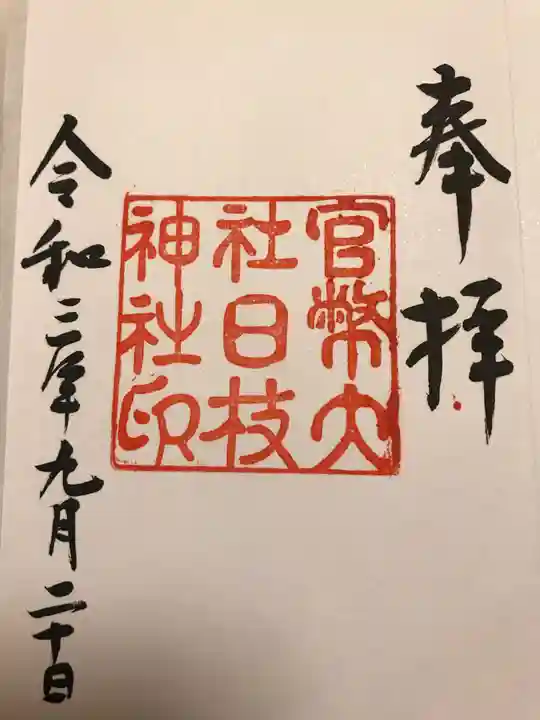 奉拝
官幣大
社日枝
神社印
令和三年九月二十日